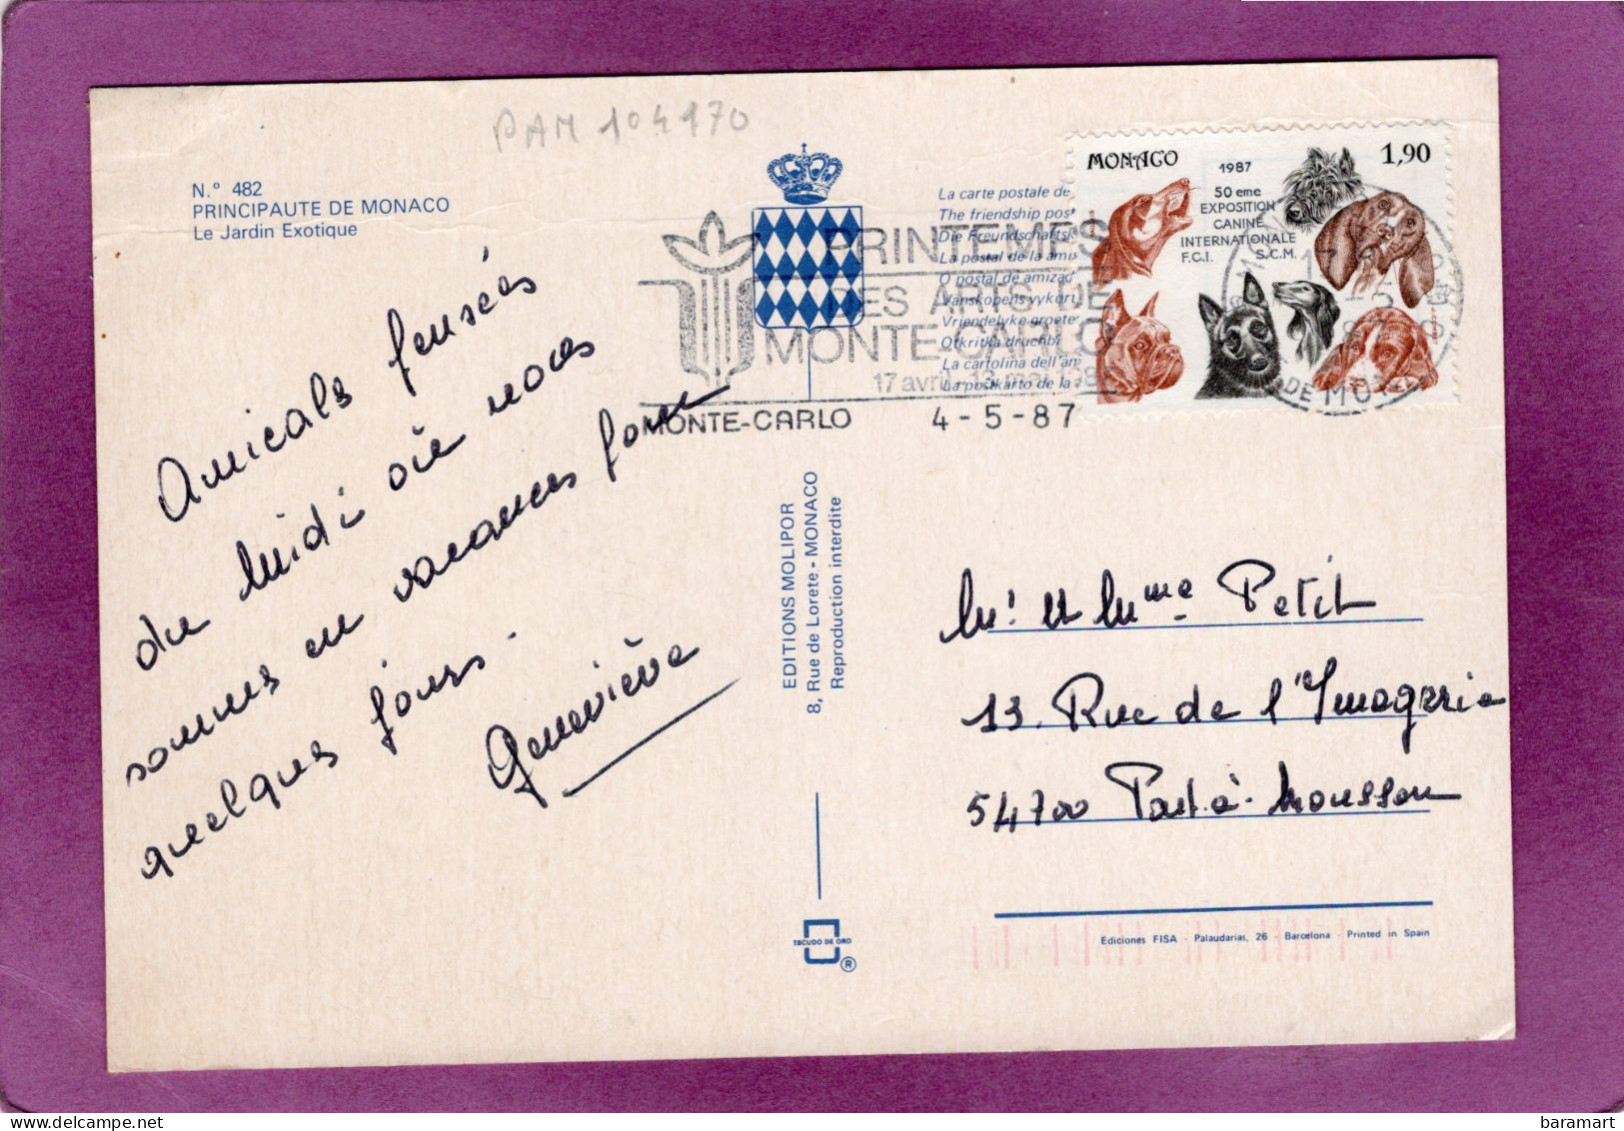 PAM 104170
N.º 482
PRINCIPAUTE DE MONACO
Le Jardin Exotique
Amicals pensées
du midi où nous
sommes en vacances pour
quelques jours.
Geneviève
PRINTEMPS
DES ARTS DE
MONTE-CARLO
17 avril - 13 mai 1987
MONTE-CARLO 4-5-87
La carte postale de
The friendship post
Die Freundschaftsk
La postal de la amis
O postal de amizad
Vanskapens vykort
Vriendelyke groete
Otkritka druchbi
La cartolina dell'am
La postkarto de la
MONACO 1,90
1987
50 eme
EXPOSITION
CANINE
INTERNATIONALE
F.C.I. S.C.M.
DE MO
EDITIONS MOLIPOR
8, Rue de Lorete - MONACO
Reproduction interdite
Mr et Mme Petit
13. Rue de l'Imagerie
54700 Pont-à-Mousson
ESCUDO DE ORO
®
Ediciones FISA - Palaudarias, 26 - Barcelona - Printed in Spain
baramart